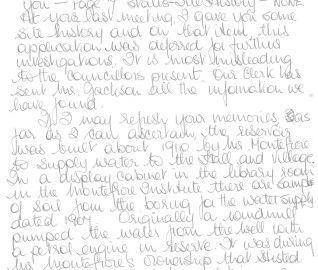 you - Page 7 Status - Site History - NONE.
At your last meeting, I gave you some
site history and on that item, this
application was deferred for further
investigations. It is most misleading
to the councillors present. Our Clerk has
sent Ms. Jackson all the information we
have found.
If I may refresh your memories as
far as I can ascertain, the reservoir
was built about 1910 by Mr Montefiore
to supply water to the Hall and Village.
In a display cabinet in the library room
in the Montefiore Institute there are samples
of soil from the boring for the water supply
dated 1907. Originally a windmill
pumped the water from the well with
a petrol engine in reserve. It was during
Mr Montefiore's ownership that